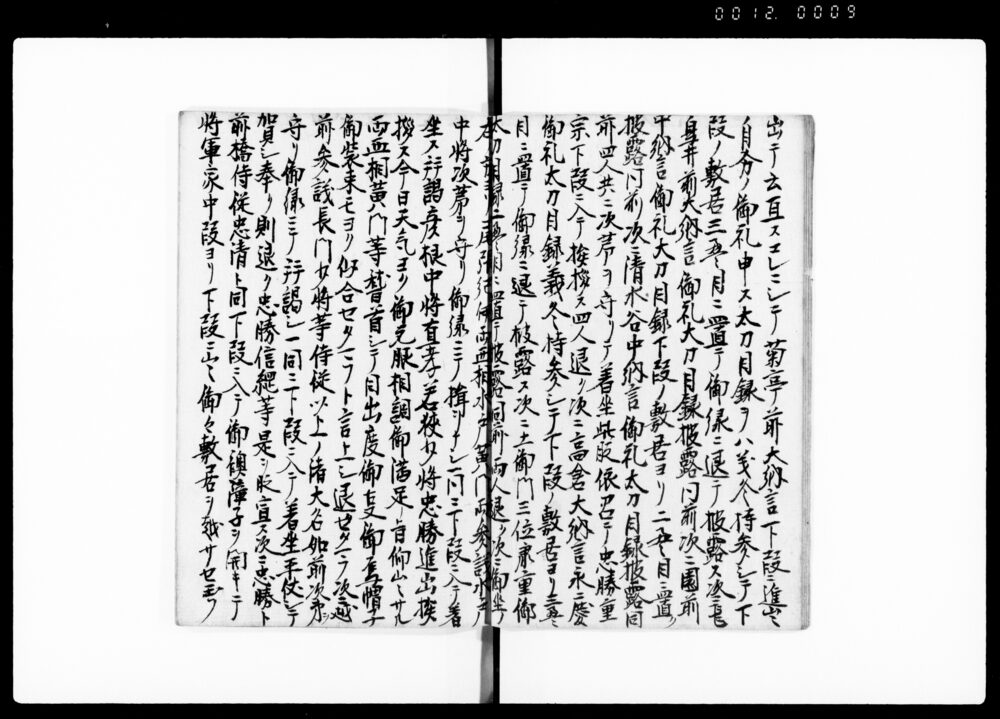 0012.0009
出テ立且スエレニシテ菊亭前大納言下段ニ進出
月分ノ御礼申ス太刀目録ヲハ義冬持参シテ下
段ノ敷居三畳目ニ置テ御縁ニ退テ披露ス次ニ
井前大納言御礼太刀目録披露同前次ニ園前
中納言御礼太刀目録下段ノ敷居ヨリ二畳目ニ置
披露同前次ニ清水谷中納言御礼太刀目録披露同
前四人共ニ次第ヲ守リテ着坐此段依召テ忠勝重
宗下段ニ入テ挨拶ス四人退ク次ニ高倉大納言永慶
御礼太刀目録義冬持参シテ下段ノ敷居ヨリ三畳
目ニ置テ御縁ニ退テ披露ス次ニ土御門三位泰重御
太刀目録二畳目ニ置テ披露同前両人退ク次ニ御坐
両亜相水戸黄門両参議
中将次第ヲ守リ御縁ニテ揖シテ一同ニ下段ニ入テ着
坐ス拝謁度根中将直孝若狭少将忠勝進出挨
拶ス今日天気ヨク御元服相調御満足ノ旨仰出サル
両亜相黄門等稽首シテ目出度御事御烏帽子
御装束モヨク似合セタマフト言上シ退セタマフ次越
前参議長門少将等侍従以上ノ諸大名如前次第ヲ
守リ御縁ニテ拝謁シ一同ニ下段ニ入テ着坐平伏シテ
賀シ奉リ則退ク忠勝信綱等是ヲ取宣ス次ニ忠勝ト
前橋侍従忠清ト同下段ニ入テ御襖障子ヲ開キテ
将軍家中段ヨリ下段ニ出御々敷居ヲ越サセ玉フ